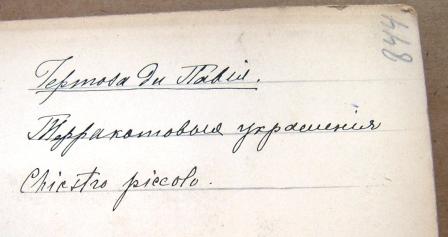 844
Чертоза ди Павiя.
Терракотовыя украшенiя
Chiostro piccolo.